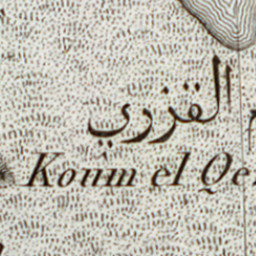 القزري
Koum el Qe